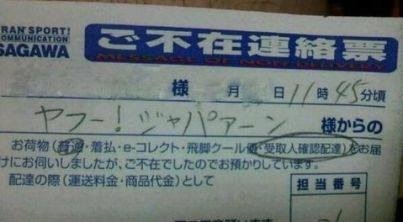 TRANSPORT!
COMMUNICATION
SAGAWA
ご不在連絡票
MESSAGE OF NON DELIVERY
様 月 日 11時45分頃
ヤフー!ジャパァーン 様からの
お荷物(普通・着払・e-コレクト・飛脚クール便・受取人確認配達)をお届
けにお伺いしましたが、ご不在でしたのでお預かりしています。
配達の際(運送料金・商品代金)として
担当番号